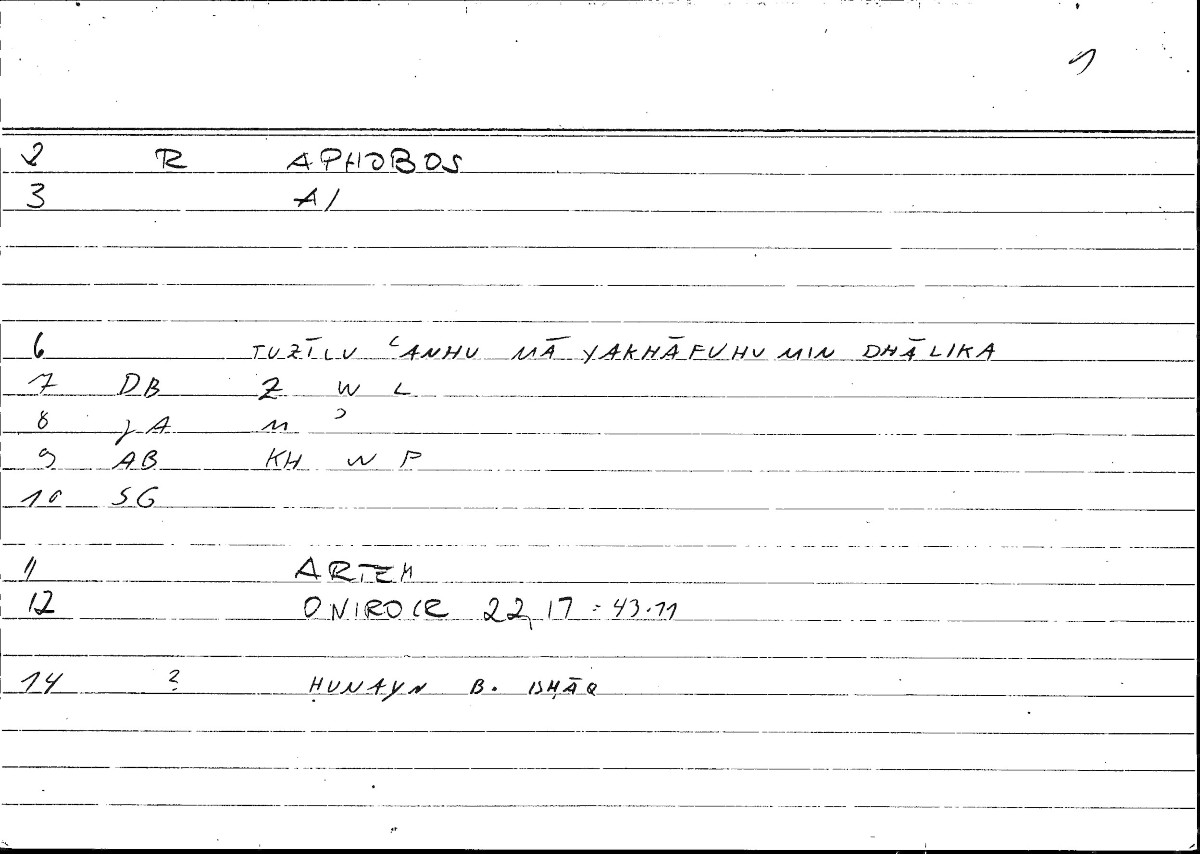 1
2 R APHOBOS
3 A/
6 TUZĪLU ʿANHU MĀ YAKHĀFUHU MIN DHĀLIKA
7 DB Z W L
8 JA M ʾ
9 AB KH W F
10 SG
11 ARTEM
12 ONIROCR 22,17 = 43.11
14 ? ḤUNAYN B. ISḤĀQ